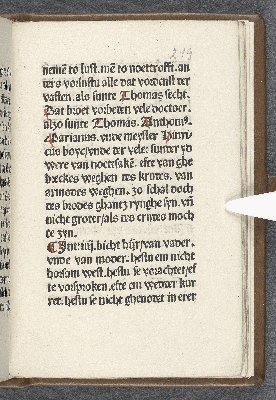 219
nemē to lust. mē to noettrofft. an
ders vorsinstu alle dat vordenst der
vasten. als sunte Thomas secht.
Dat broet vorbeden vele doctoer.
alzo sunte Thomas. Anthoniꝰ.
Parianus. vnde meyster Hinri
cus boyc/vnde der vele: sunder yd
were van noetsake. efte van ghe
breckes weghen des krudes. van
armodes weghen. zo schal doch
des brodes ghantz rynghe syn. vñ
nicht groter/als des crudes moch
te zyn.
Int iiij. bicht hijr van vader.
vnde van moder. hestu em nicht
horsam west. hestu se vorachtet/ef
te vorsproken. efte em wedder kur
ret. hestu se nicht ghenoret in erer